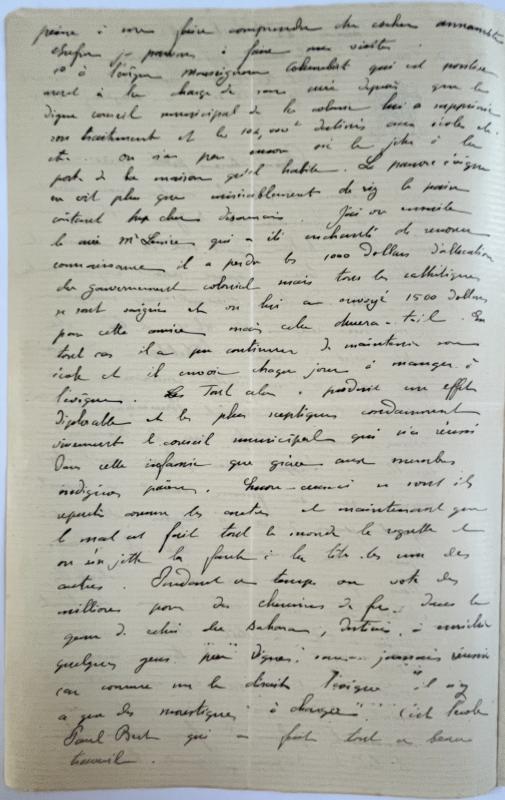 peine à me faire comprendre du cocher annamite
Enfin je pouvais faire mes visites
1° à l'évêque Monseigneur Colombert qui est
à la charge de son depuis que le
digne conseil municipal de la colonie lui a supprimé
son traitement et les destinés aux écoles etc.
etc. on n'a pas encore osé le jeter à la
porte de la maison qu'il habite. Le pauvre évêque
ne vit plus que misérablement de riz le pain
coûtant trop cher désormais. J'ai vu ensuite
le curé Mr qui a été enchanté de renouer
connaissance il a perdu les 1000 dollars d'allocation
du gouvernement colonial mais tous les catholiques
se sont saignés et on lui a envoyé 1500 dollars
pour cette année mais cela durera-t-il. En
tout cas il a pu continuer de maintenir son
école et il envoie chaque jour à manger à
l'évêque. Tout cela a produit un effet
déplorable et les plus sceptiques condamnent
vivement le conseil municipal qui n'a réussi
Dans cette infamie que grâce aux membres
indigènes païens. Encore ceux-ci se sont ils
repentis comme les autres et maintenant que
le mal est fait tout le monde le regrette et
on s'en jette la faute à la tête les uns des
autres. Pendant ce temps on vote des
millions pour des chemins de fer, dans le
genre de celui du Sahara, destinés à enrichir
quelques gens jamais réussir
car comme me le disait l'évêque il n'y
a que des moustiques à charger. C'est l'école
Paul Bert qui a fait tout ce beau
travail.